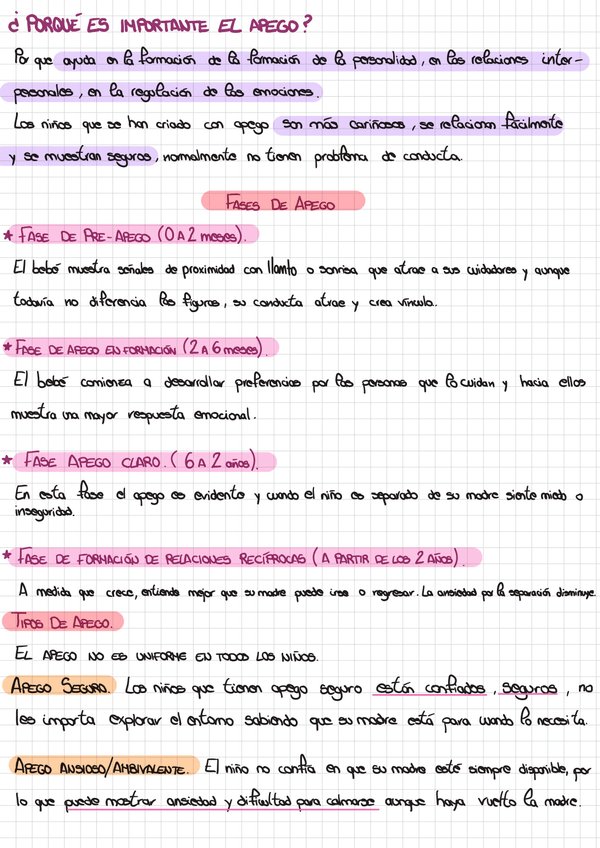 ¿ PORQUÉ ES IMPORTANTE EL APEGO?
Por que ayuda en la formación de la formación de la personalidad, en las relaciones inter-
personales, en la regulación de las emociones.
Los niños que se han criado con apego son más cariñosos, se relacionan fácilmente
y se muestran seguros, normalmente no tienen problema de conducta.
FASES DE APEGO
* FASE DE PRE-APEGO (0 A 2 meses).
El bebé muestra señales de proximidad con llanto o sonrisa que atrae a sus cuidadores y aunque
todavía no diferencia las figuras, su conducta atrae y crea vínculo.
* FASE DE APEGO EN FORMACIÓN (2 A 6 meses).
El bebé comienza a desarrollar preferencias por las personas que lo cuidan y hacia ellos
muestra una mayor respuesta emocional.
* FASE APEGO CLARO. (6 A 2 años).
En esta fase el apego es evidente y cuando el niño es separado de su madre siente miedo o
inseguridad.
* FASE DE FORMACIÓN DE RELACIONES RECÍPROCAS (A PARTIR DE LOS 2 AÑOS).
A medida que crece, entiende mejor que su madre puede irse o regresar. La ansiedad por la separación disminuye.
TIPOS DE APEGO.
EL APEGO NO ES UNIFORME EN TODOS LOS NIÑOS.
APEGO SEGURO. Los niños que tienen apego seguro están confiados, seguros, no
les importa explorar el entorno sabiendo que su madre está para cuando lo necesita.
APEGO ANSIOSO/AMBIVALENTE. El niño no confía en que su madre esté siempre disponible, por
lo que puede mostrar ansiedad y dificultad para calmarse aunque haya vuelto la madre.